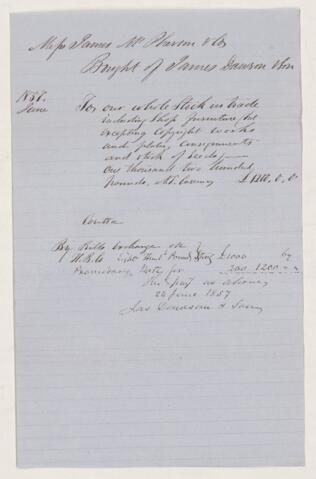 Messrs James McPherson & Co
Bought of James Dawson & Son
1857.
June
To our whole Stock in trade
including Shop furniture, but
excepting Copyright works
and plates, consignments
and stock of Seeds,—
One thousand two hundred
Pounds, £1200, 0, 0
Contra
By Bills Exchange
£1000
Promissory Note for 200 1200 " "
as above,
24 June 1857
Jas Dawson & Son